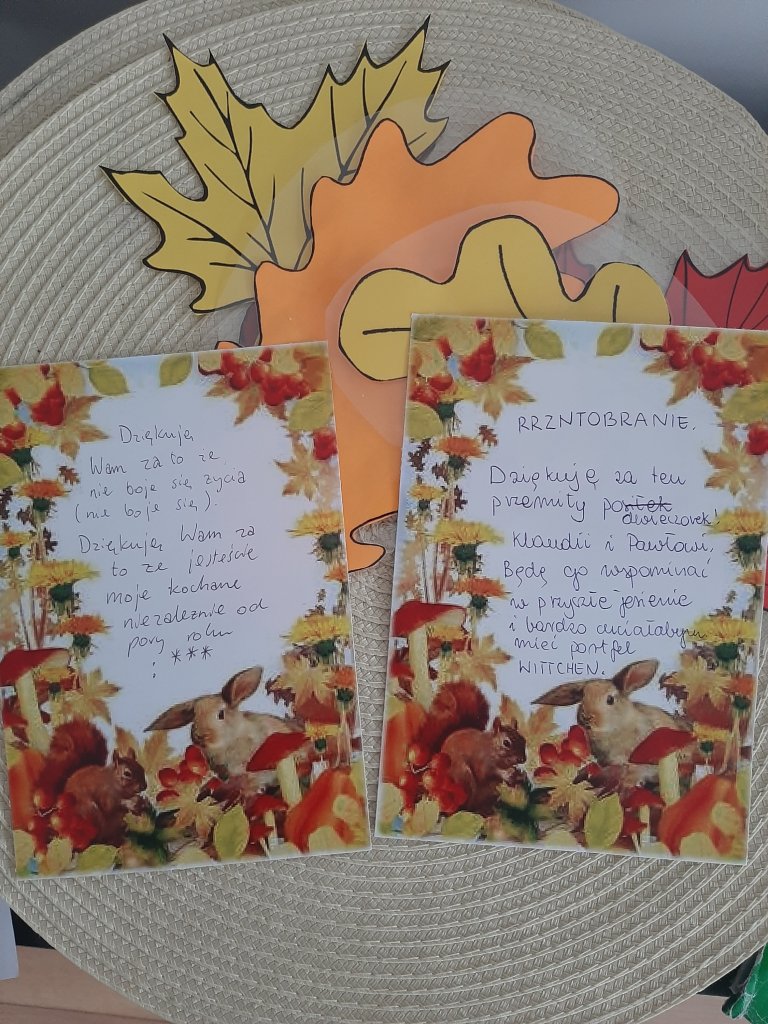 Dziękuję
Wam za to że
nie boje się życia
(nie boje się).
Dziękuję Wam za
to że jesteście
moje kochane
niezależnie od
pory roku
: ***
RRZNTOBRANIE.
Dziękuję za ten
przemiły
dwieczorek!
Klaudii i Pawłowi.
Będę go wspominać
w przyszłe jesienie
i bardzo chciałabym
mieć portfel
WITTCHEN.